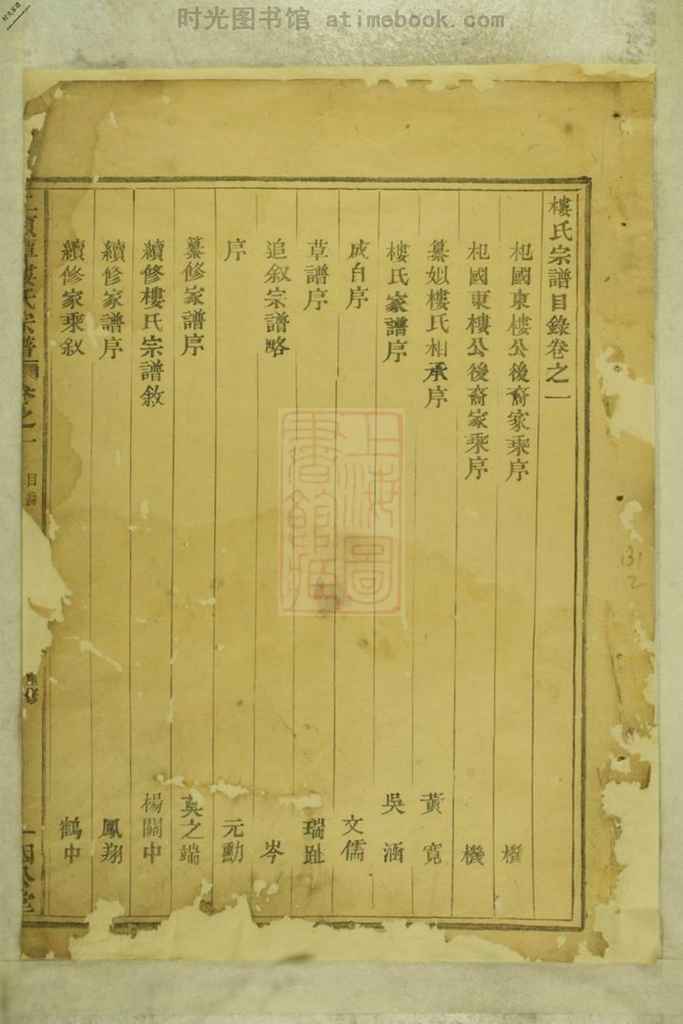 时光图书馆 atimebook.com
樓氏宗譜目錄卷之一
杞國東樓公後裔家乘序 機
杞國東樓公後裔家乘序 機
纂姒樓氏相承序 黃寬
樓氏家譜序 吳涵
成自序 文儒
草譜序 瑞趾
追叙宗譜略 岑
序 元勳
纂修家譜序 吳之端
續修樓氏宗譜敘 楊闢中
續修家譜序 鳳翔
續修家乘叙 鶴中
樓氏宗譜 卷之一 目錄
上海圖書館藏
131
2